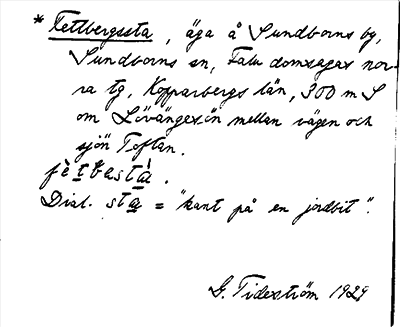 * Fettbergssta, äga å Sundborns by,
Sundborns sn, Falu domsagas nor-
ra tg, Kopparbergs län, 300 m S
om Lövängersön mellan vägen och
sjön Toftan.
Dial. sta = "kant på en jordbit".
G. Tideström 1929